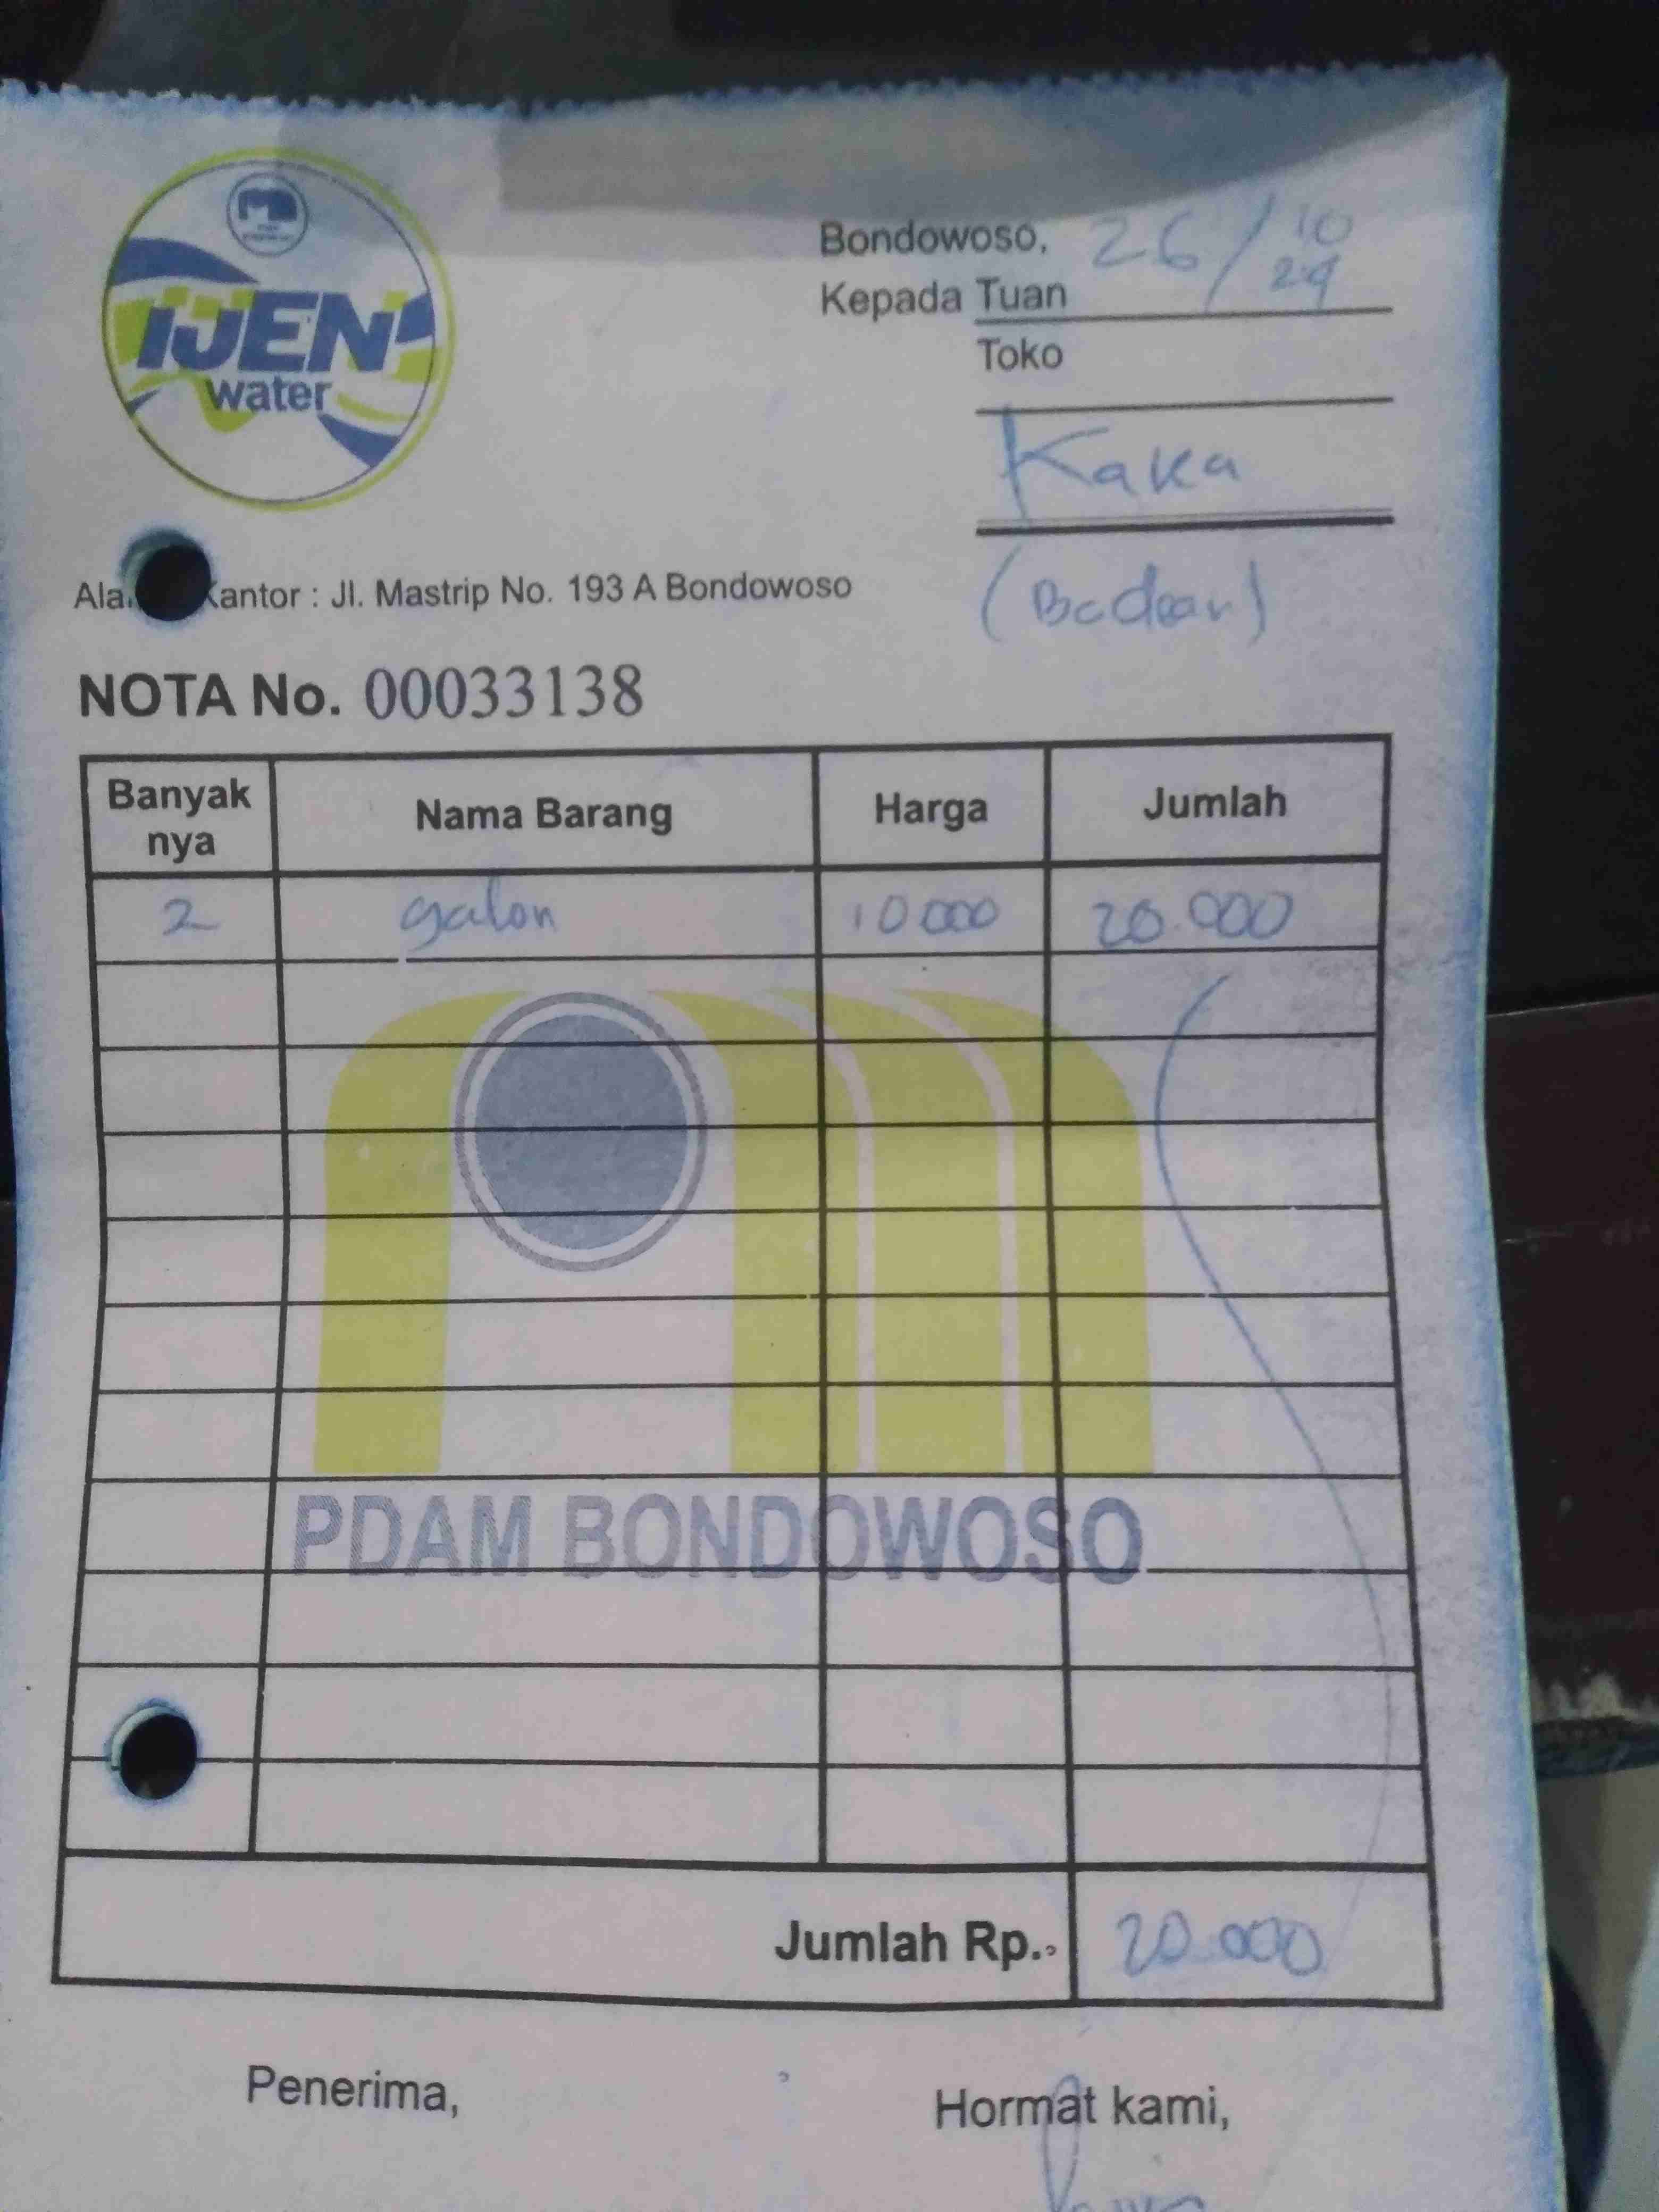 IJEN
water
Bondowoso, 26/10
24
Kepada Tuan
Toko
Kaka
(Badean)
Kantor : Jl. Mastrip No. 193 A Bondowoso
NOTA No. 00033138
Banyak nya Nama Barang Harga Jumlah
2 galon 10 000 20.000
PDAM BONDOWOSO
Jumlah Rp. 20.000
Penerima, Hormat kami,